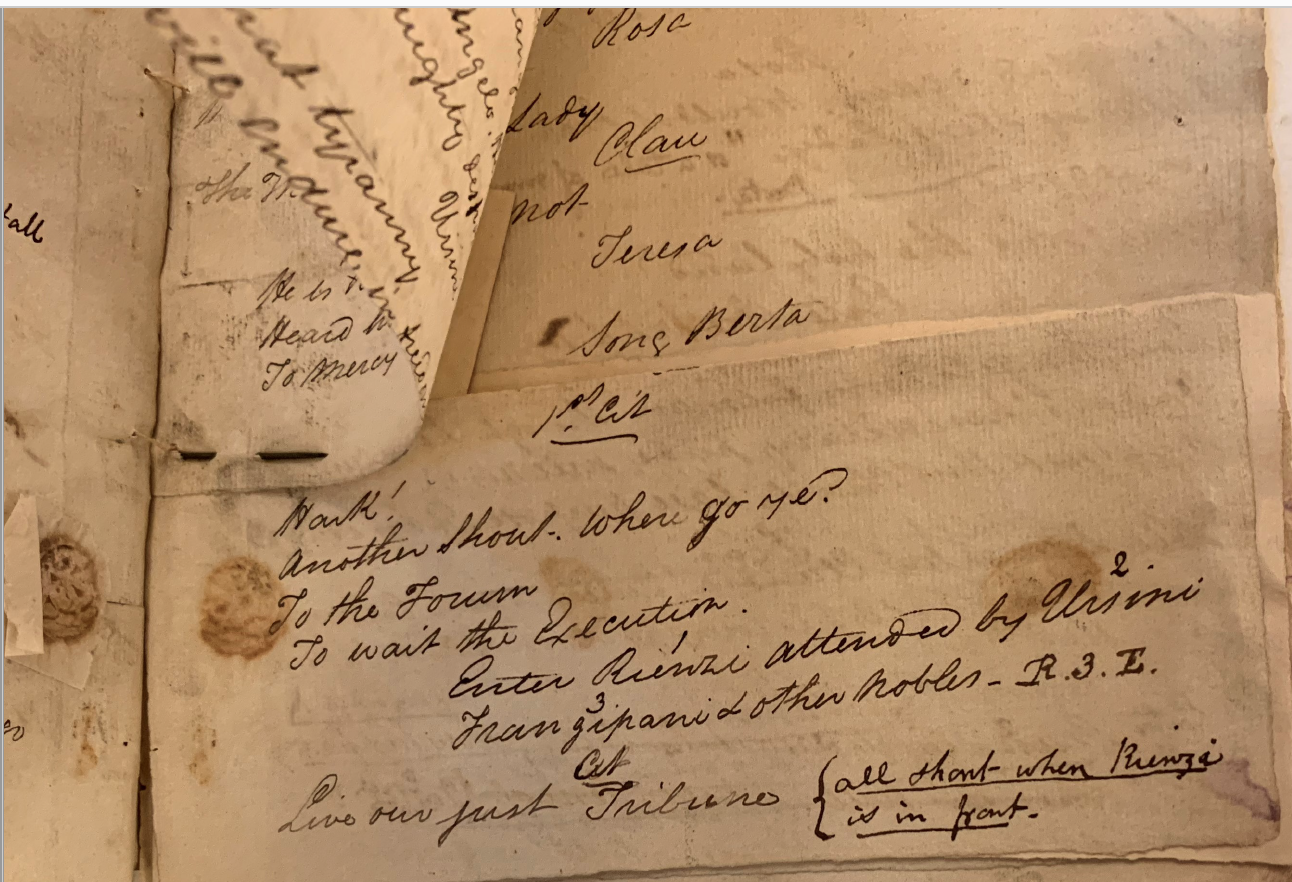 will endure
that tyranny
ngelo.
aughty
Ursin
tall
The
He is
Heard
To mercy
Rosa
Lady
Clau
not
Teresa
Song Berta
1st. Cit
Hark!
Another Shout. Where go ye?
To the Forum
To wait the Execution.
Enter Rienzi attended by Ursini
1 2
Frangipani & other Nobles - R.3.E.
3
Cit
Live our just Tribune
{all shout when Rienzi
is in front.